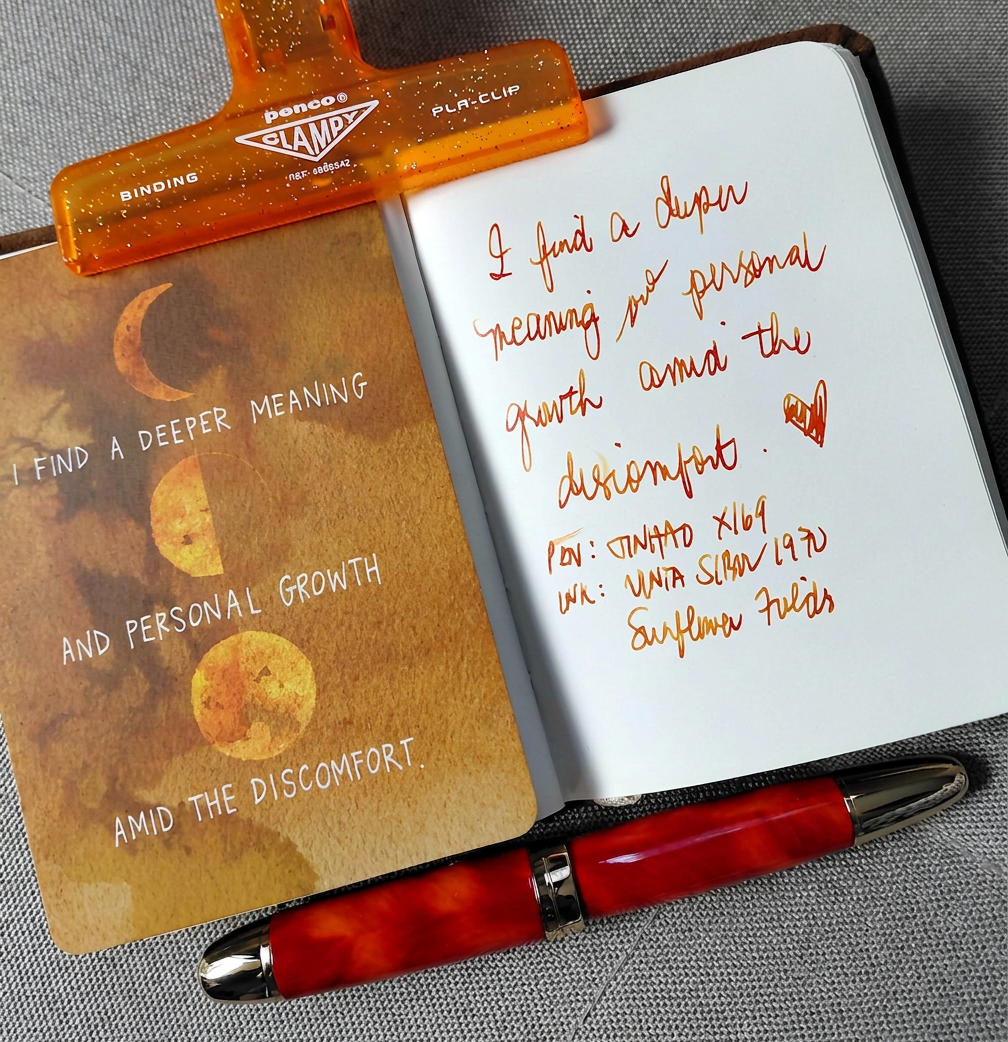 penco®
CLAMPY
BINDING
PLA-CLIP
I FIND A DEEPER MEANING
AND PERSONAL GROWTH
AMID THE DISCOMFORT.
I find a deeper
meaning personal
growth amid the
discomfort.
PEN: JINHAO X169
INK: SLBW 1970
Sunflower Fields